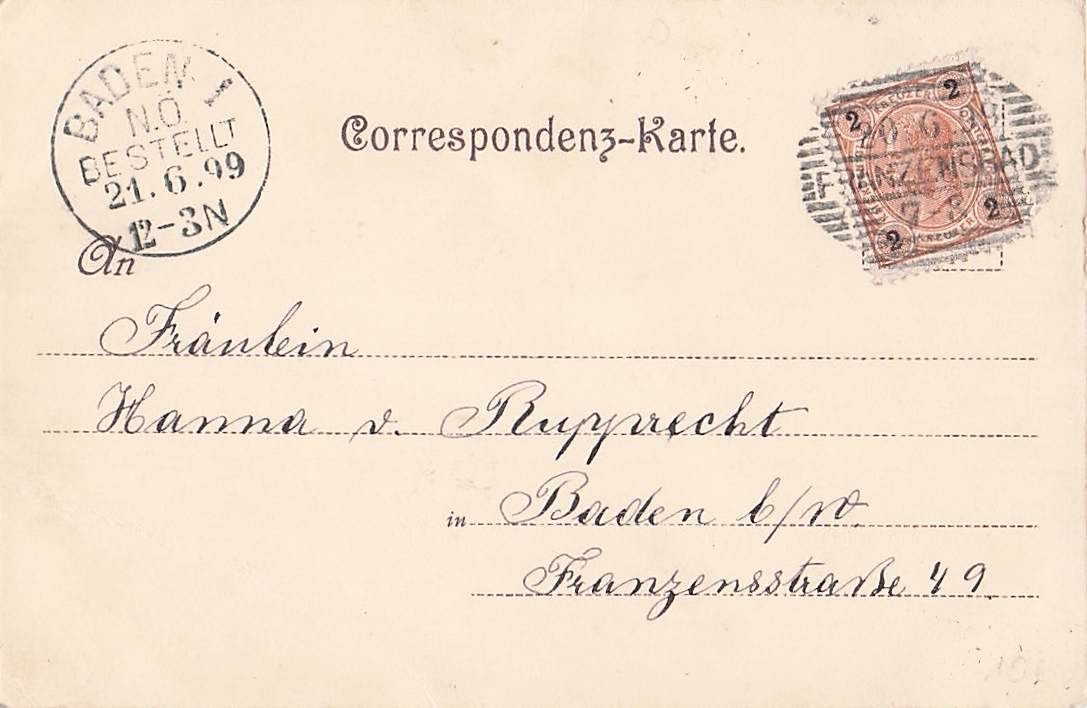 BADEN 1
N.Ö.
BESTELLT
21.6.99
12-3N
Correspondenz-Karte.
2 KREUZER 2
20 6
FRANZENSBAD
7-8
2 KREUZER 2
An
Fräulein
Hanna v. Rupprecht
in Baden b/W.
Franzensstraße 49.